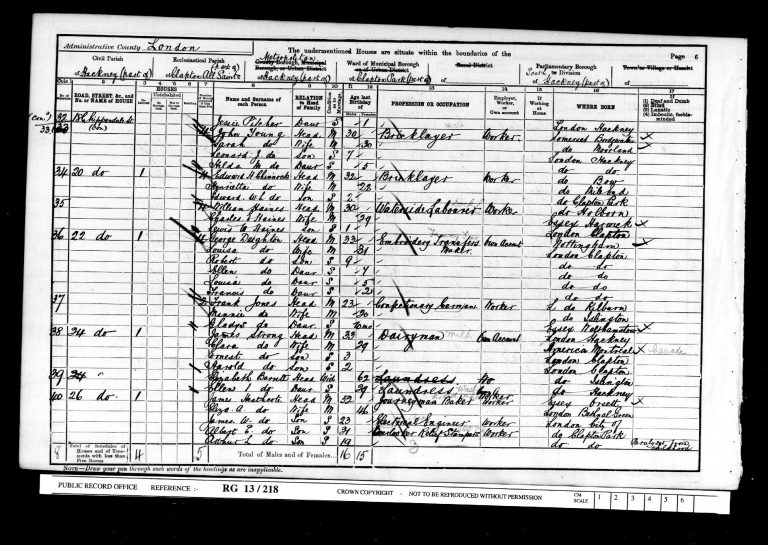 Administrative County London
The undermentioned Houses are situate within the boundaries of the
Page 6
Civil Parish
of Hackney (part of)
Ecclesiastical Parish (part of)
of Clapton All Saints
Metropolitan
County Borough, Municipal Borough, or Urban District
of Hackney (part of)
Ward of Municipal Borough
of Clapton Park (part of)
Rural District
of
Parliamentary Borough
South or Division
of Hackney (part of)
Town or Village or Hamlet
of
ROAD, STREET, &c., and No. or NAME of HOUSE
HOUSES
Name and Surname of each Person
RELATION to Head of Family
Age last Birthday of
PROFESSION OR OCCUPATION
Employer, Worker, or Own account
If Working at Home
WHERE BORN
(1) Deaf and Dumb
(2) Blind
(3) Lunatic
(4) Imbecile, feeble-minded
32 Jessie Pitcher Daur S 1 London Hackney
John Young Head M 30 Bricklayer Worker Somerset Bridgwater
Sarah do Wife M 30 do
Leonard J. do Son S 7 London Hackney
Hilda M. do Daur S 5 do do
34 20 do 1 Edward H. Head M 32 Bricklayer Worker do Bow
Henrietta do Wife M 22 do Mile End
Edward W. do Son S 2 do Clapton Park
35 William Haines Head M 30 Waterside Labourer Worker do Holborn
Charles Haines Wife M 29 Essex Harwich
Lewis Haines Son S 1 London Clapton
36 22 do 1 George Deighton Head M 33 Embroidery Transfers Maker Own Account Nottingham
Louisa do Wife M 31 London Clapton
Robert do Son S 9 do do
Ellen do Daur S 7 do do
Louisa do Daur S 5 do do
Francis do Daur S 2 do do
37 Frank Jones Head M 23 Confectionery Carman Worker L. do Kilburn
Minnie do Wife M 20 do Islington
Gladys do Daur S Essex Walthamstow
38 24 do 1 James Strong Head M 33 Dairyman Milk Own Account London Hackney
Clara do Wife M 29 America Montreal Canada
Ernest do Son S 3 London Clapton
Harold do Son S 2 London Clapton
39 24 Elizabeth Barnett Head Wid 62 Laundress do Islington
Ellen do Daur S 39 Laundress Worker do Hackney
40 26 do 1 James Heathcote Head M 52 Journeyman Baker Worker Essex Orsett
Eliza A do Wife M 46 London Bethnal Green
James W. do Son S 23 Electrical Engineer Worker London City of
Albert E. do Son S 21 Relief Stamper Worker do Clapton Park
Arthur L. do Son S 19 do do Paralysed from childhood
8 Total of Schedules of Houses and of Tenements with less than Five Rooms 4 5
Total of Males and of Females... 16 15
NOTE—Draw your pen through such words of the headings as are inapplicable.
PUBLIC RECORD OFFICE REFERENCE :- RG 13/218 CROWN COPYRIGHT - NOT TO BE REPRODUCED WITHOUT PERMISSION CM SCALE 1 2 3 4 5 6